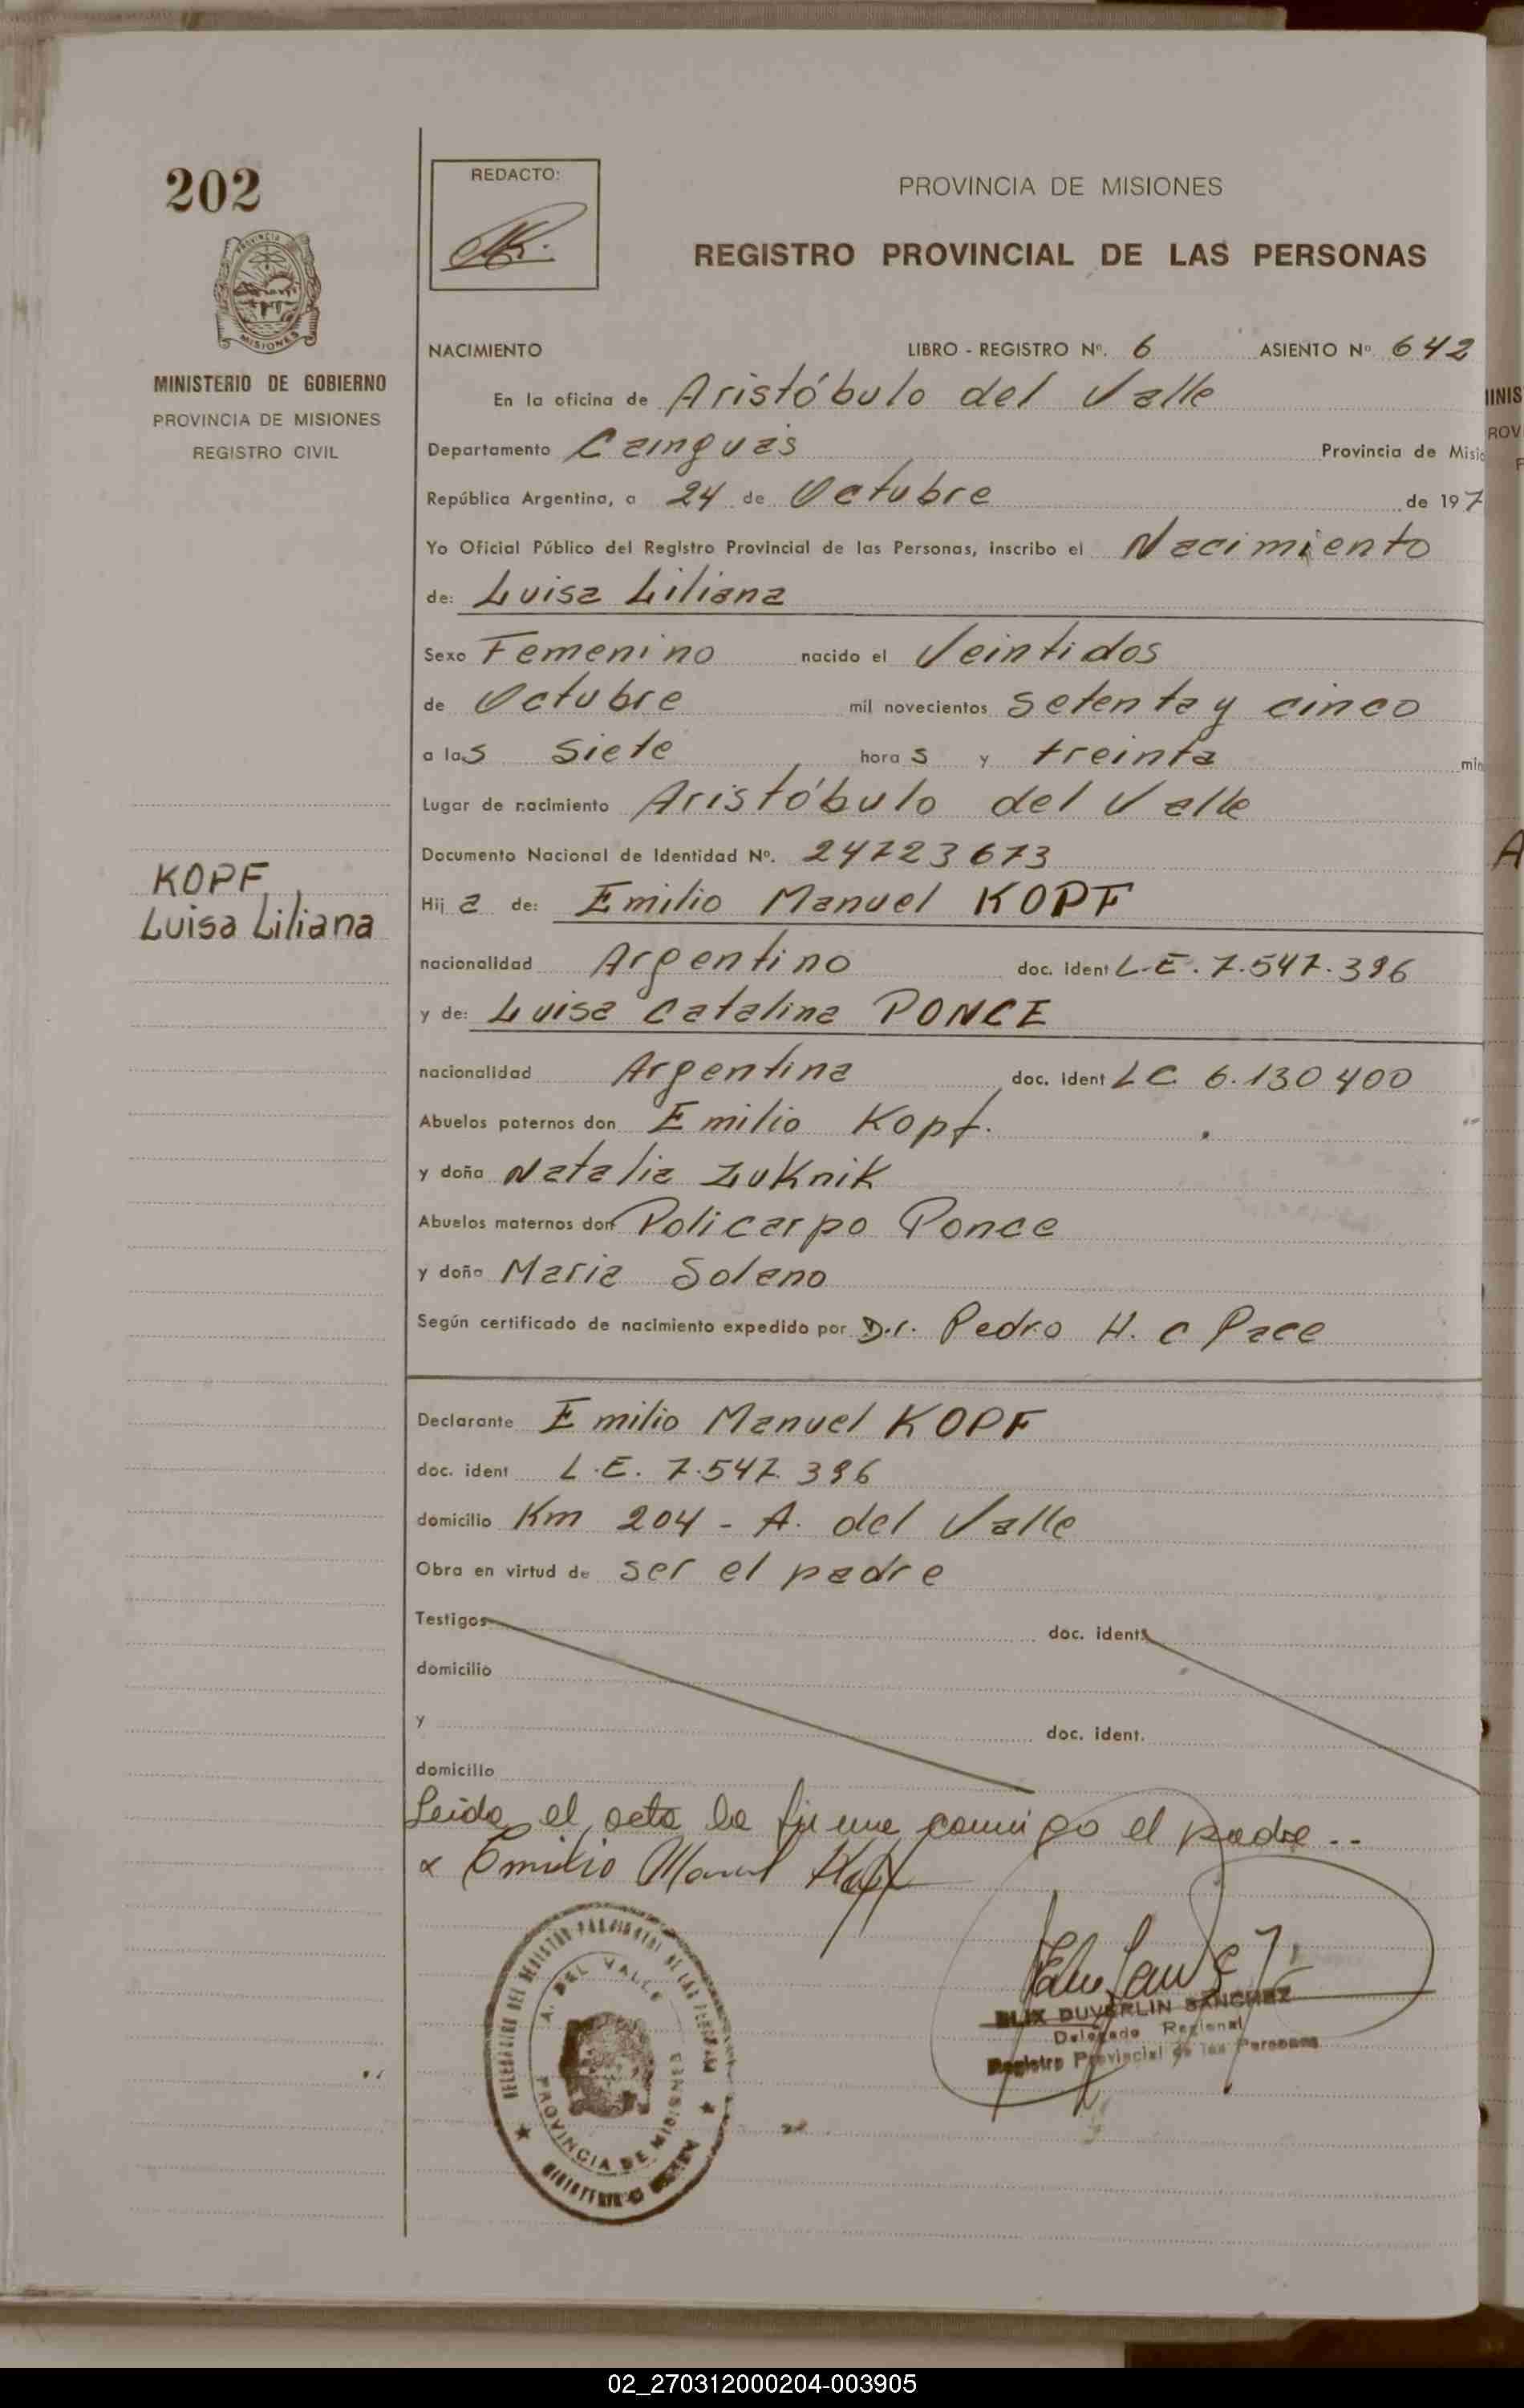 202
PROVINCIA
MISIONES
MINISTERIO DE GOBIERNO
PROVINCIA DE MISIONES
REGISTRO CIVIL
REDACTO:
PROVINCIA DE MISIONES
REGISTRO PROVINCIAL DE LAS PERSONAS
NACIMIENTO LIBRO - REGISTRO Nº. 6 ASIENTO Nº 642
En la oficina de Aristóbulo del Valle
Departamento Cainguás Provincia de Misio
República Argentina, a 24 de Octubre de 197
Yo Oficial Público del Registro Provincial de las Personas, inscribo el Nacimiento
de: Luisa Liliana
Sexo Femenino nacido el Veintidos
de Octubre mil novecientos setenta y cinco
a las siete horas y treinta min
Lugar de nacimiento Aristóbulo del Valle
Documento Nacional de Identidad Nº. 24723673
KOPF
Luisa Liliana
Hija de: Emilio Manuel KOPF
nacionalidad Argentino doc. ident L.E. 7.547.396
y de: Luisa Catalina PONCE
nacionalidad Argentina doc. ident LC 6.130400
Abuelos paternos don Emilio Kopf.
y doña Natalia Luknik
Abuelos maternos don Policarpo Ponce
y doña Maria Solano
Según certificado de nacimiento expedido por Dr. Pedro H. C Pace
Declarante Emilio Manuel KOPF
doc. ident L.E. 7.547.396
domicilio Km 204 - A. del Valle
Obra en virtud de ser el padre
Testigos doc. ident.
domicilio
y doc. ident.
domicilio
Leida el acta la firma conmigo el padre --
x Emilio Manuel Kopf
DELEGACION DEL REGISTRO PROVINCIAL DE LAS PERSONAS
A. DEL VALLE
PROVINCIA DE MISIONES
MINISTERIO
DUVERLIN SANCHEZ
Delegado Regional
Registro Provincial de las Personas
MINIS
ROV
A
02_270312000204-003905